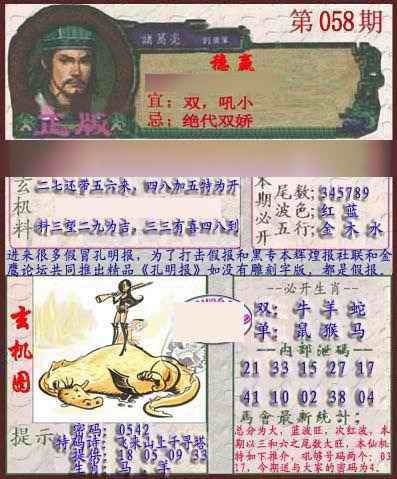 第058期
諸葛亮
稳赢
宜：双，吼小
忌：绝代双娇
正版
玄机料
二七还带五六来，四八加五特为开
料三望二九为吉，三三有喜四八到
本期必开
尾数:345789
波色:红 蓝
五行:金 木 水
进来很多假冒孔明报，为了打击假报和黑专本辉煌报社联和金
鹰论坛共同推出精品《孔明报》如没有雕刻字版，都是假报。
玄机图
必开生肖
双：牛 羊 蛇
单：鼠 猴 马
内部泄码
21 33 15 27 17
41 10 02 38 04
馬會最新統計；
总分为大，蓝波旺，次红波，本
期以三和六之尾数大旺，本仙机
特如下推介，吼够号码两个：03
17，今期送与大家的密码为4.
提示
密码：0542
特码诗：飞来山上千寻塔
提倍：18 05 09 33
生肖：马，羊